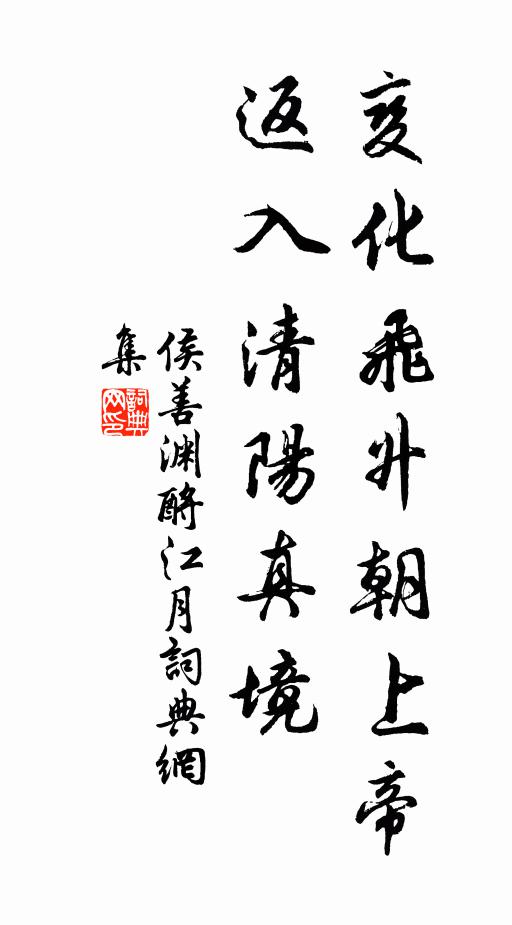 變化飛升朝上帝
返入清陽真境
侯善渊酹江月詞典網
集
詞典
网印